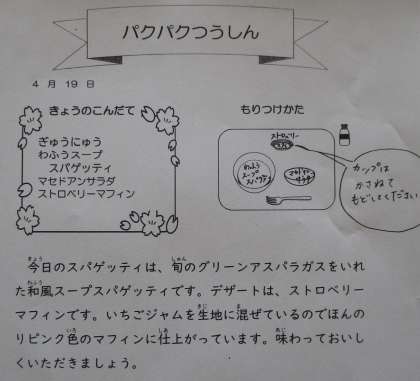 パクパクつうしん
4月19日
きょうのこんだて
ぎゅうにゅう
わふうスープ
スパゲッティ
マセドアンサラダ
ストロベリーマフィン
もりつけかた
ストロベリー
わふう
スープ
スパゲッティ
マセドアン
サラダ
カップは
かさねて
もどしてください
今日のスパゲッティは、旬のグリーンアスパラガスをいれ
た和風スープスパゲッティです。デザートは、ストロベリー
マフィンです。いちごジャムを生地に混ぜているのでほんの
りピンク色のマフィンに仕上がっています。味わっておいし
くいただきましょう。